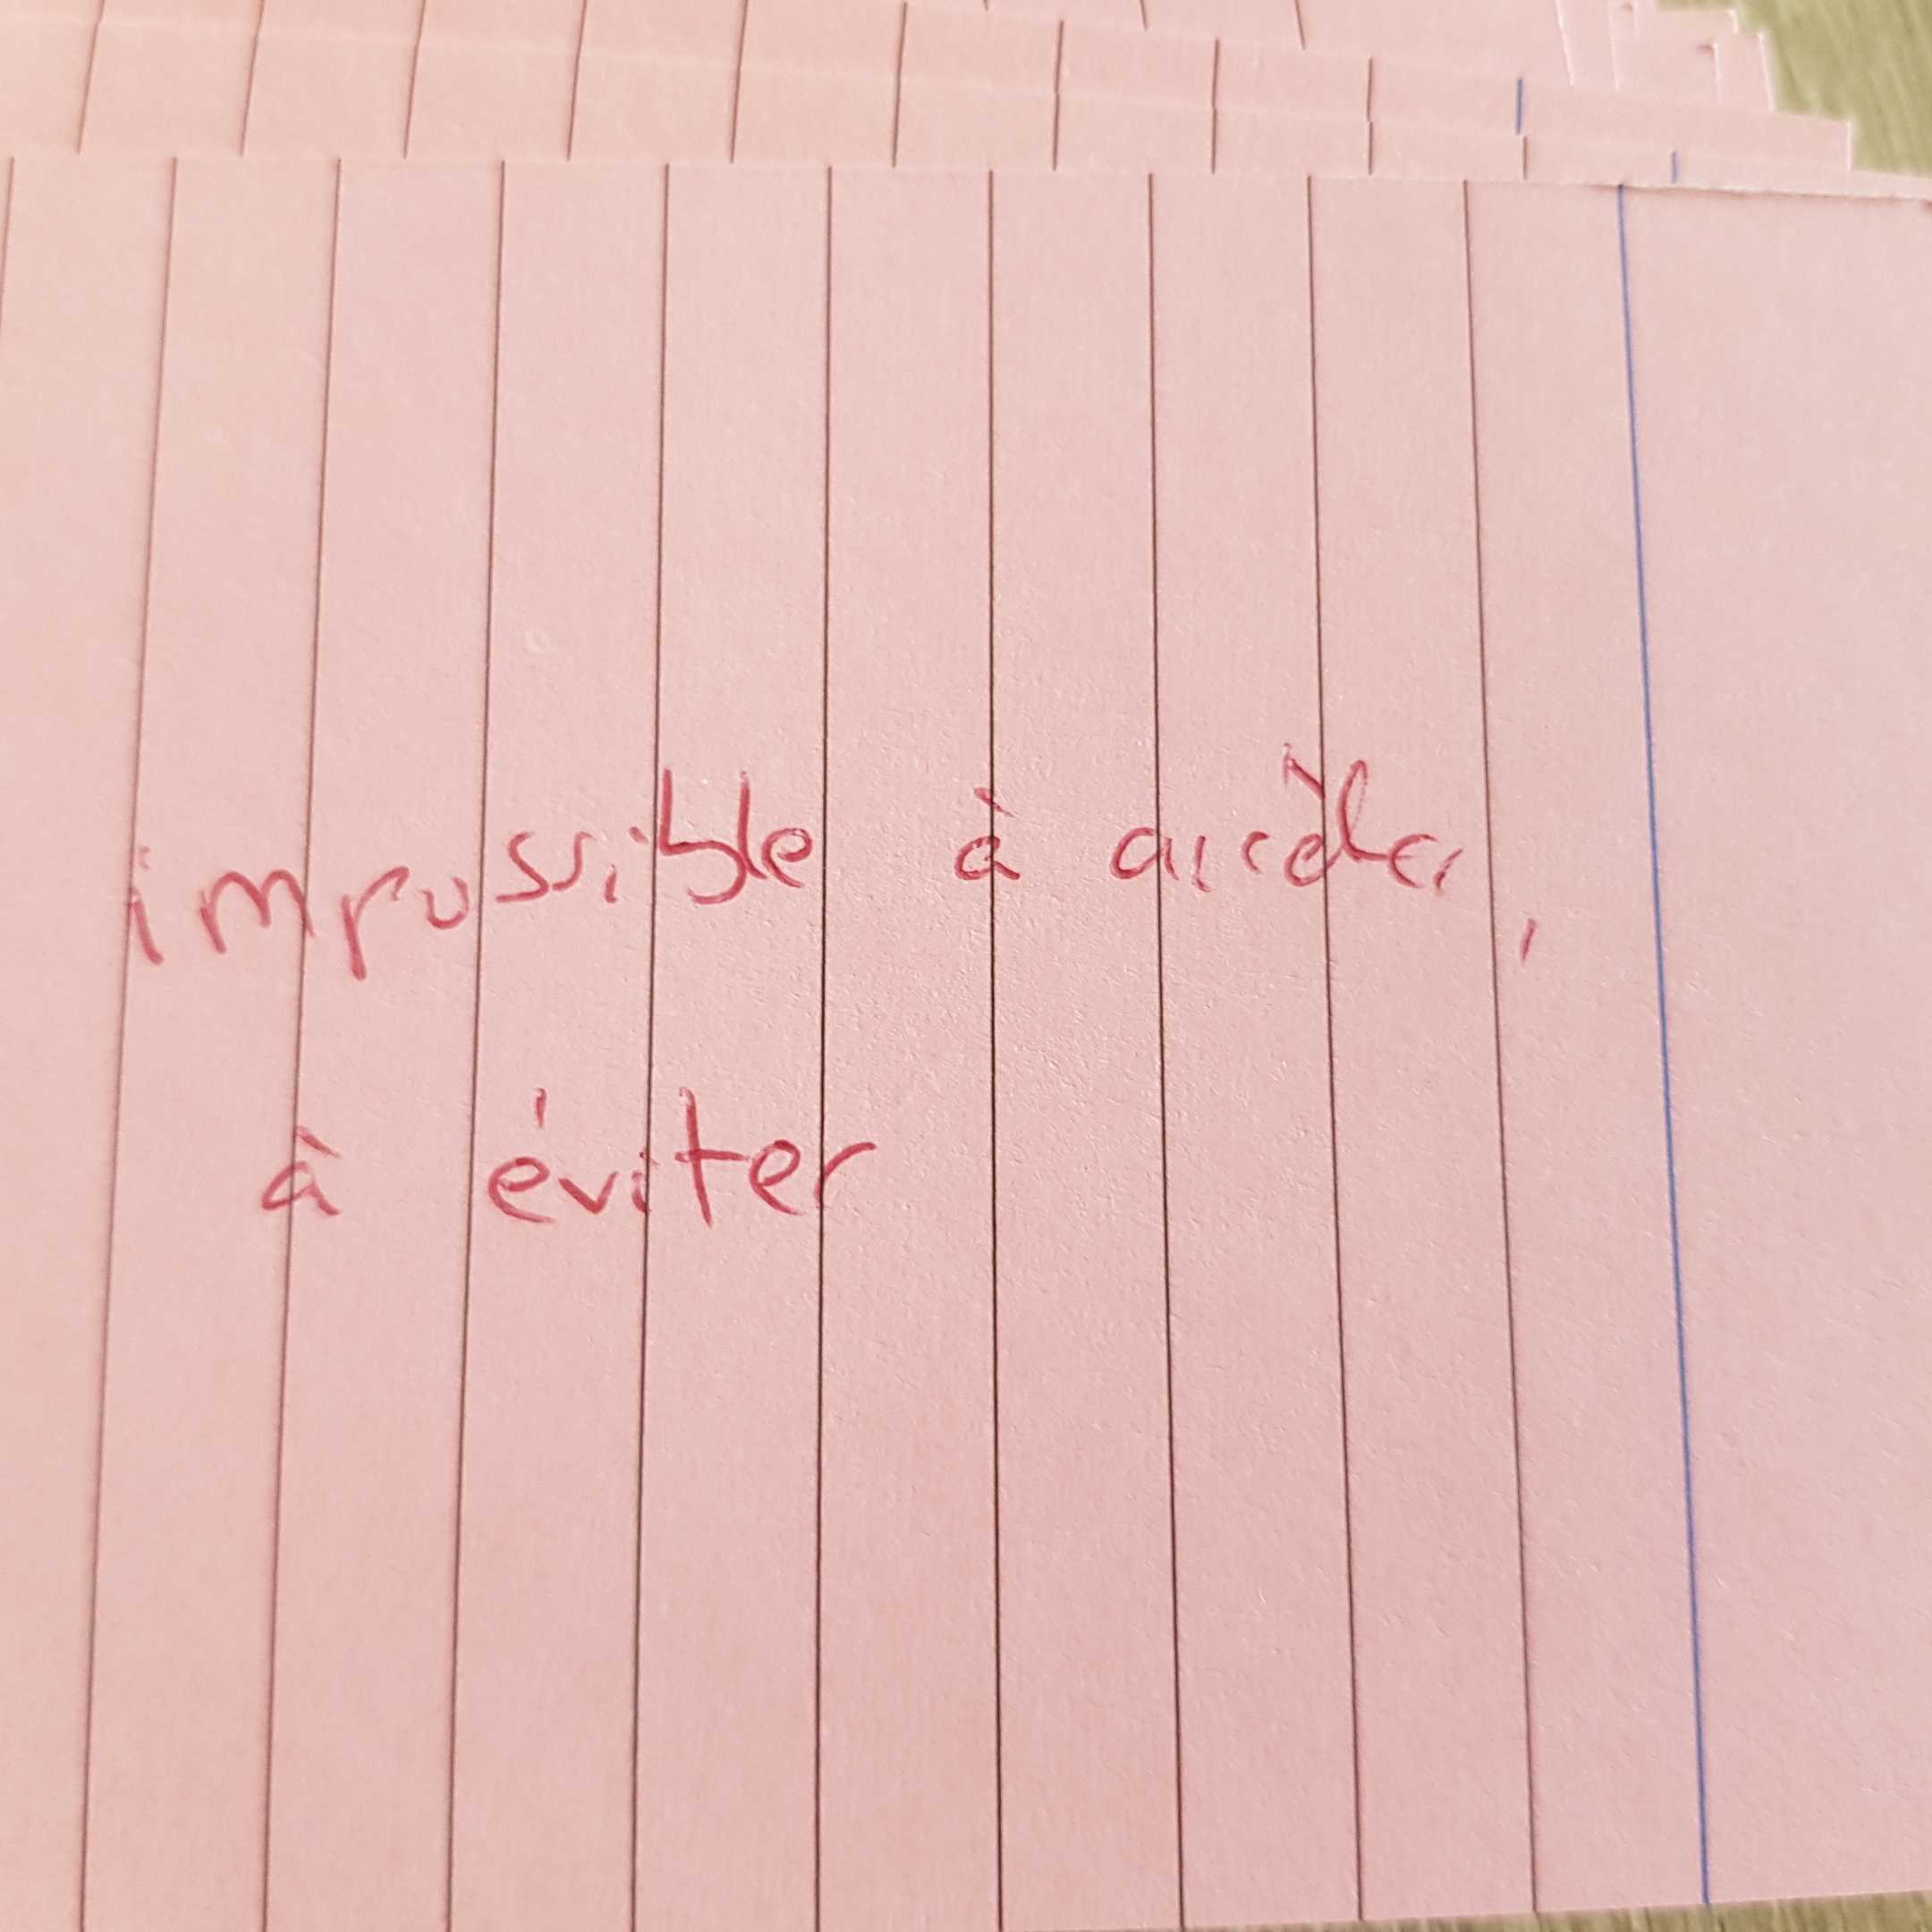 impossible à arrêter,
à éviter